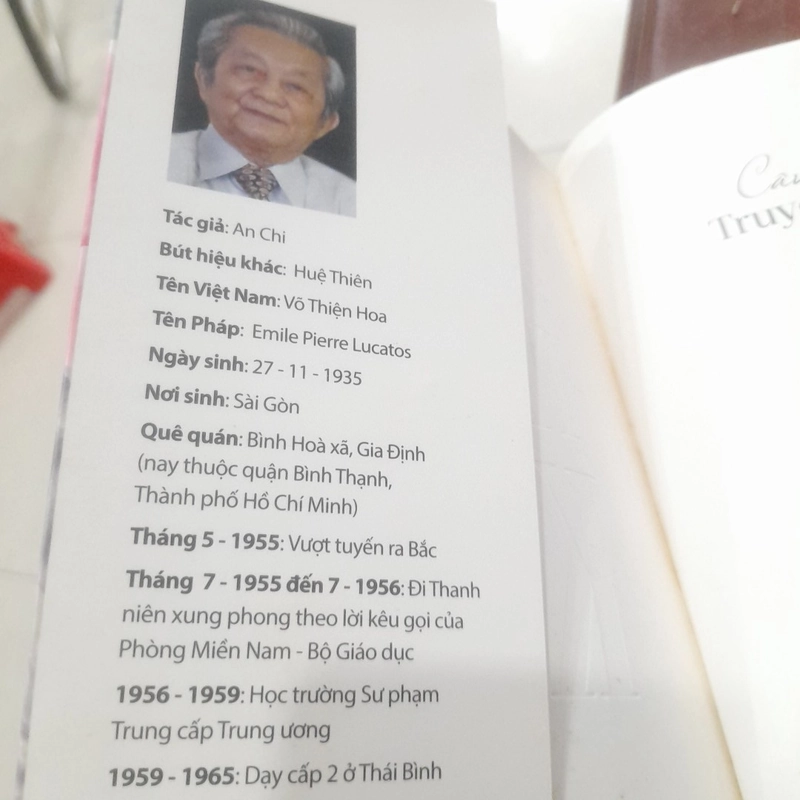 Tác giả: An Chi
Bút hiệu khác: Huệ Thiên
Tên Việt Nam: Võ Thiện Hoa
Tên Pháp: Emile Pierre Lucatos
Ngày sinh: 27 - 11 - 1935
Nơi sinh: Sài Gòn
Quê quán: Bình Hoà xã, Gia Định
(nay thuộc quận Bình Thạnh,
Thành phố Hồ Chí Minh)
Tháng 5 - 1955: Vượt tuyến ra Bắc
Tháng 7 - 1955 đến 7 - 1956: Đi Thanh
niên xung phong theo lời kêu gọi của
Phòng Miền Nam - Bộ Giáo dục
1956 - 1959: Học trường Sư phạm
Trung cấp Trung ương
1959 - 1965: Dạy cấp 2 ở Thái Bình